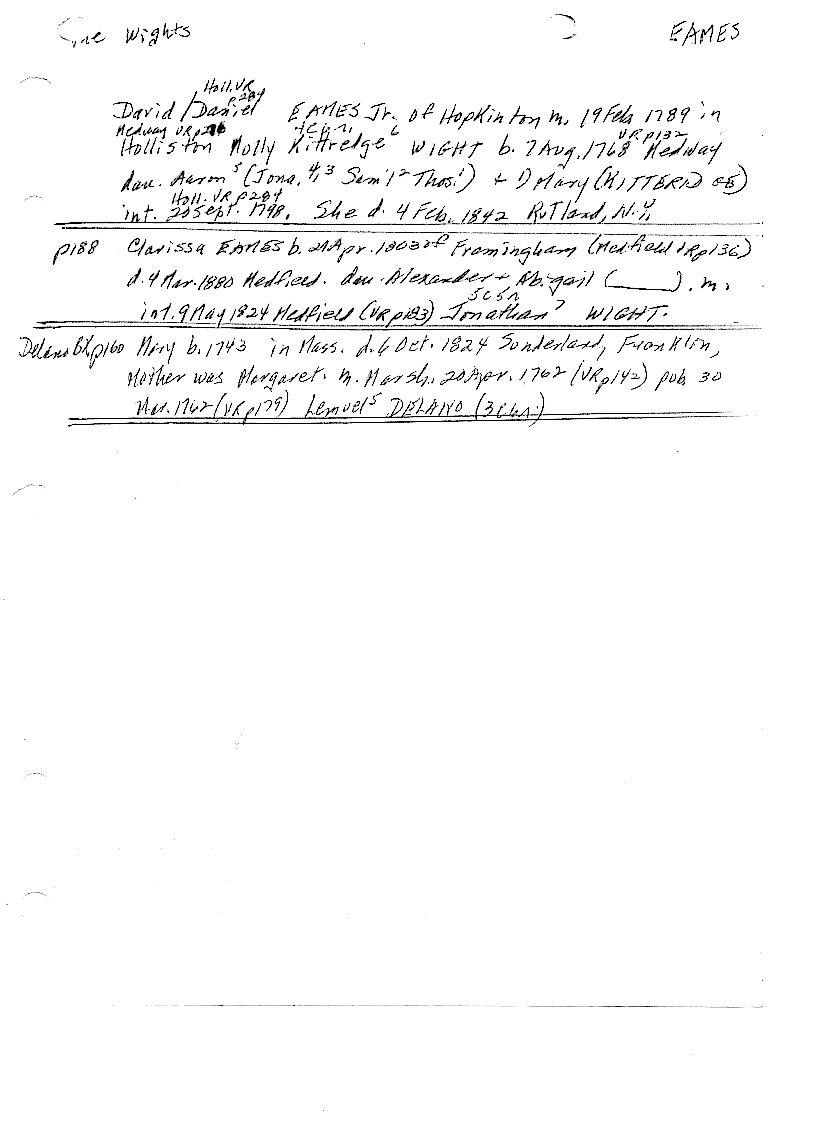 The Wights EAMES
Holl. VR
p284
David/Daniel EAMES Jr. of Hopkinton m. 19 Feb 1789 in
Medway VR p286 4 Ch n VR p132
Holliston Molly Kittredge⁶ WIGHT b. 7 Aug. 1768 Medway
dau. Aaron⁵ (Jona.⁴,³ Sam'l² Thos!) + D Mary (KITTERID GE)
Holl. VR p284
int. 20 Sept. 1798. She d. 4 Feb. 1842 Rutland, N.Y.
p188 Clarissa EAMES b. 21 Apr. 1803 of Framingham (Medfield VR p136)
d. 4 Mar. 1880 Medfield. dau. Alexander + Abigail (______). m.
5 C 5 n
int. 9 May 1824 Medfield (VR p183) Jonathan⁷ WIGHT.
Delano BK p160 Mary b. 1743 in Mass. d. 6 Oct. 1824 Sunderland, Franklin,
Mother was Margaret. m. Marsh. 20 Apr. 1762 (VR p142) pub. 30
Mar. 1762 (VR p179) Lemuel⁵ DELANO (3 Ch.)